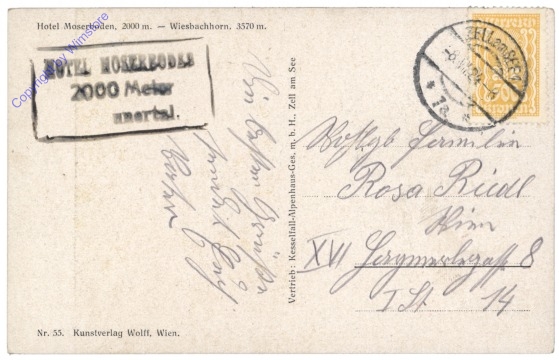 Hotel Moserboden, 2000 m. — Wiesbachhorn. 3570 m.
Copyright by Wimstore
HOTEL MOSERBODEN
2000 Meter
ZELL am SEE
1a
Vertrieb: Kesselfall-Alpenhaus-Ges. m. b. H., Zell am See
Die besten Grüße
Vater
Wohlgb Fräulein
Rosa Riedl
Wien
XVI
8
I St. 14
Nr. 55. Kunstverlag Wolff, Wien.